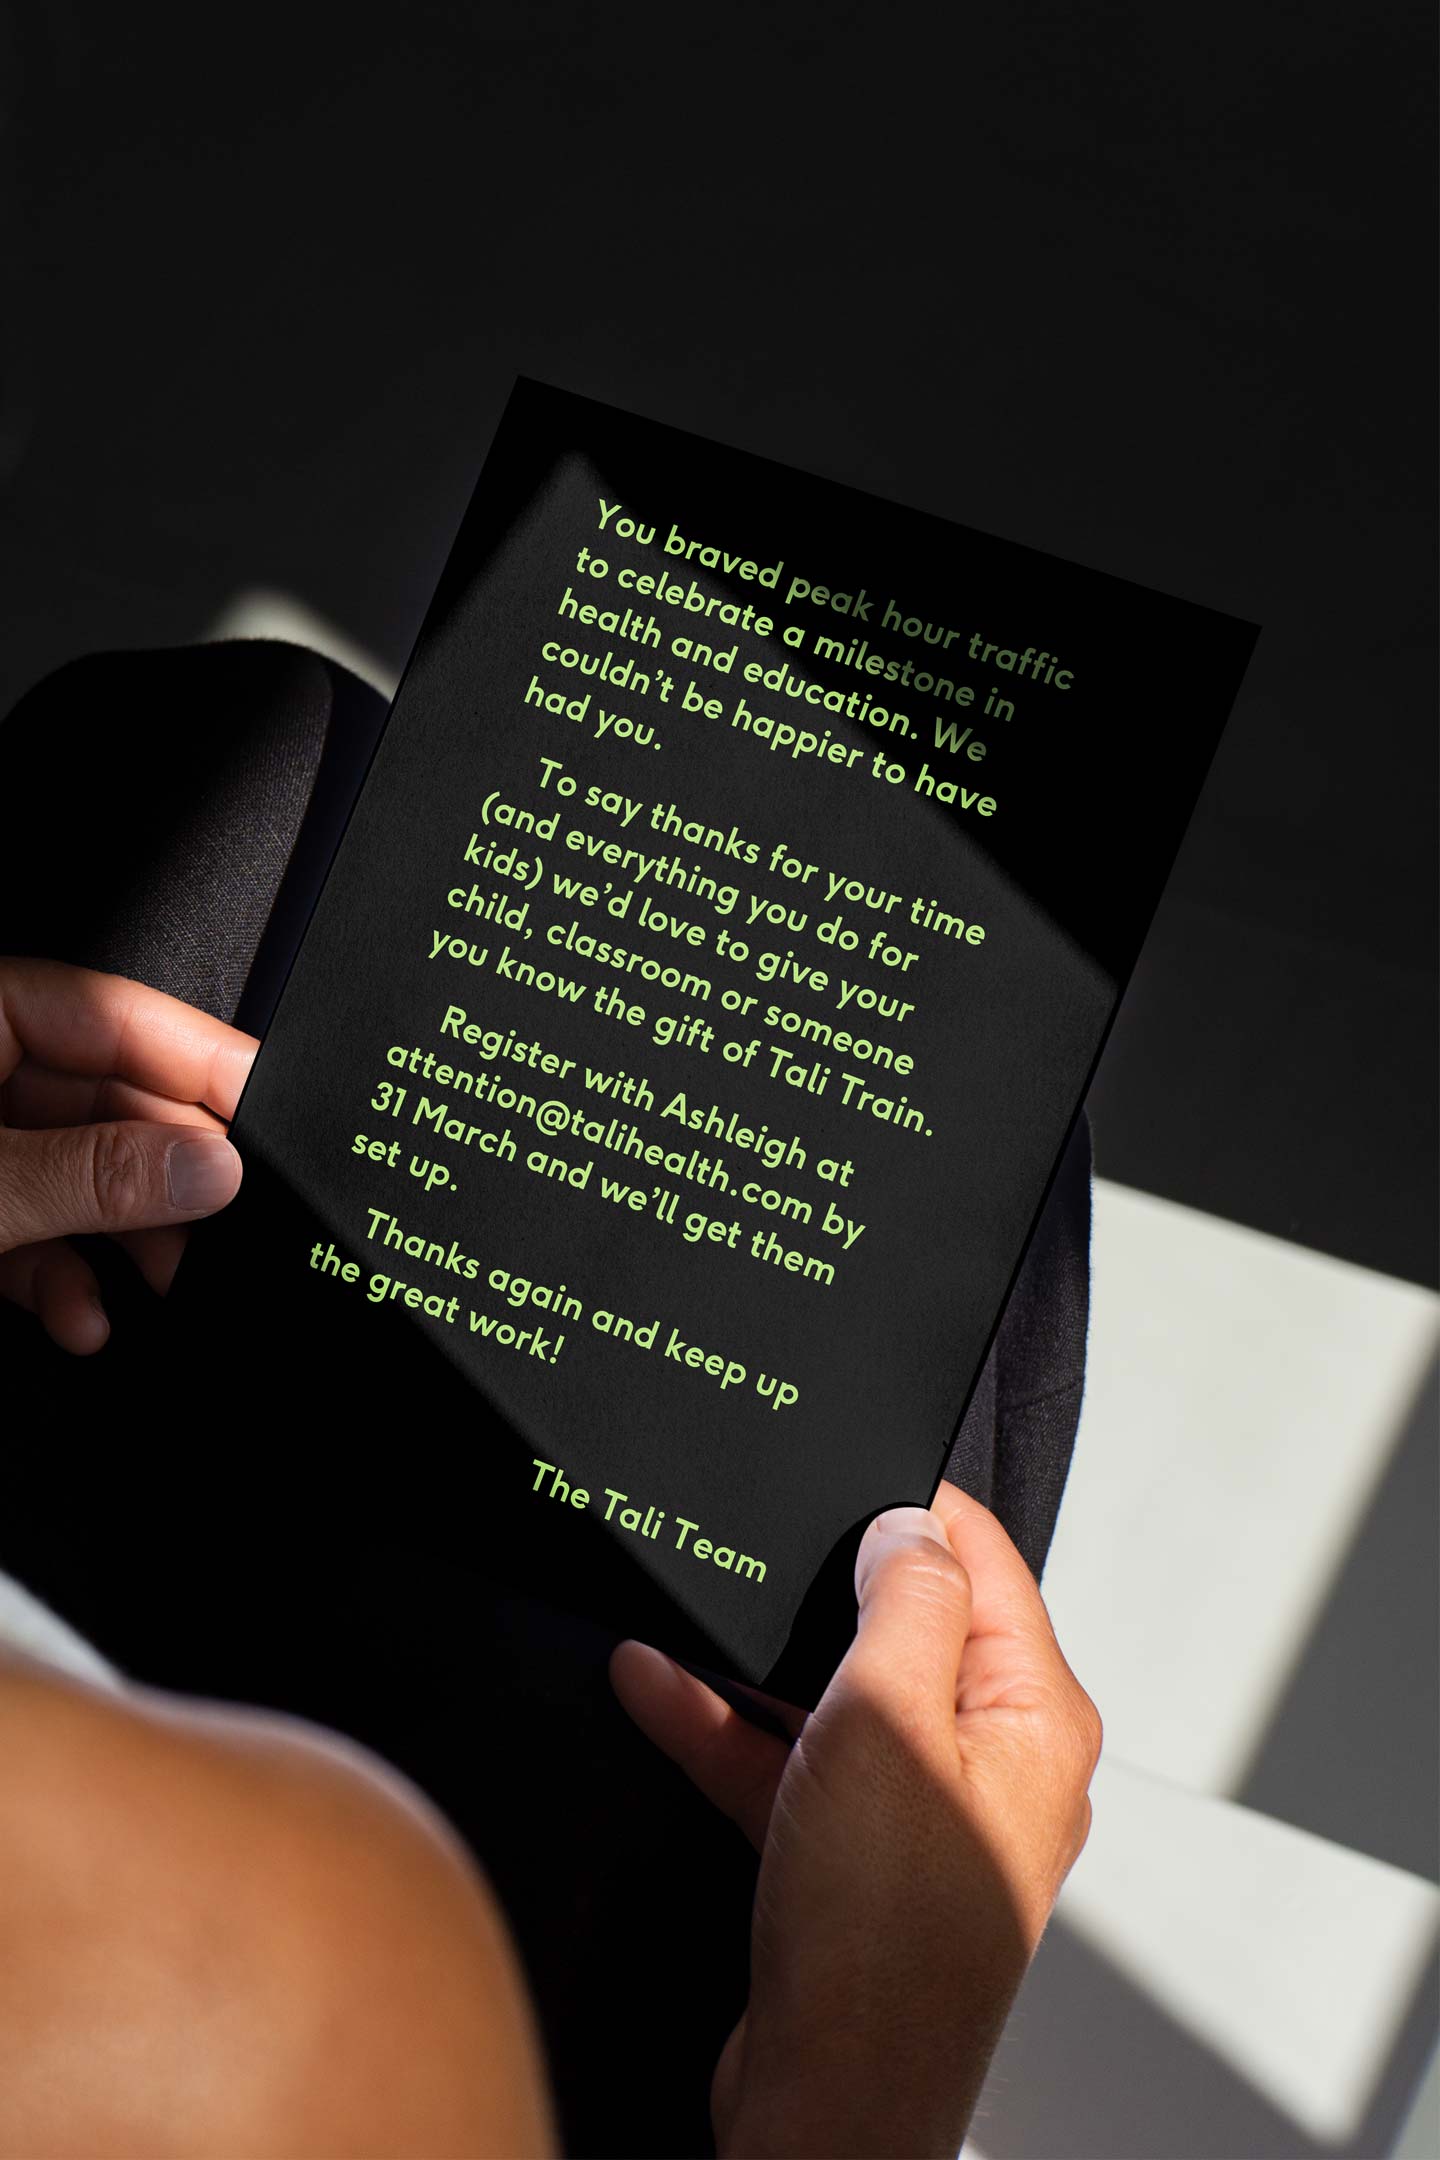 You braved peak hour traffic
to celebrate a milestone in
health and education. We
couldn’t be happier to have
had you.
To say thanks for your time
(and everything you do for
kids) we’d love to give your
child, classroom or someone
you know the gift of Tali Train.
Register with Ashleigh at
attention@talihealth.com by
31 March and we’ll get them
set up.
Thanks again and keep up
the great work!
The Tali Team